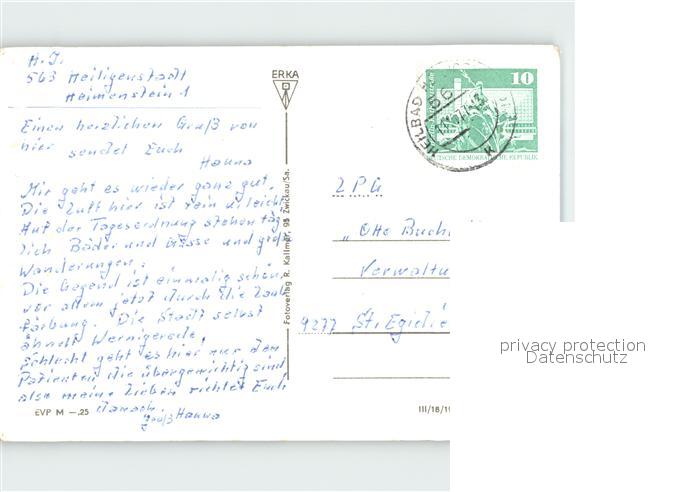 H. J.
563 Heiligenstadt
Heimenstein 1
Einen herzlichen Gruß von
hier sendet Euch
Hanna
Mir geht es wieder ganz gut.
Die Luft hier ist rein u. leicht.
Auf der Tagesordnung stehen täg-
lich Bäder und Güsse und große
Wanderungen.
Die Gegend ist einmalig schön,
vor allem jetzt durch die Laub
färbung. Die Stadt selbst
ähnelt Wernigerode.
Schlecht geht es hier nur den
Patienten die übergewichtig sind
also meine Lieben richtet Euch
danach.
Gruß Hanna
EVP M –.25
ERKA
Fotoverlag R. Kallmer, 95 Zwickau/Sa.
III/18/19
HEILBAD
10
DEUTSCHE DEMOKRATISCHE REPUBLIK
LPG
„Otto Buch
Verwaltu
9277 St. Egidie
privacy protection
Datenschutz